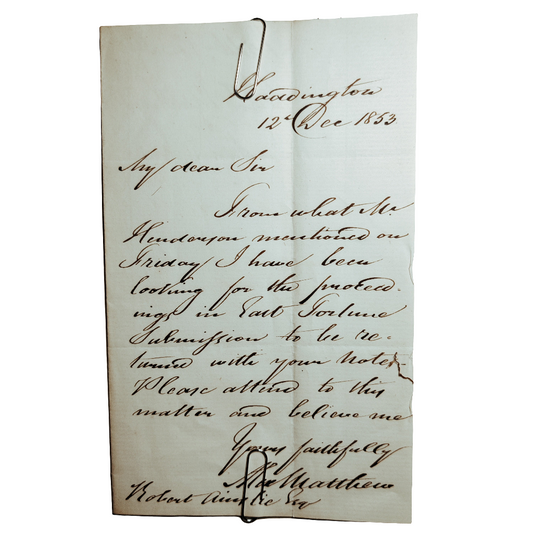 Haddington
12th Dec 1853
My dear Sir
From what Mr
Henderson mentioned on
Friday I have been
looking for the proceed-
ings in East Fortune
Submission to be re-
turned with your Notes
Please attend to this
matter and believe me
Yours faithfully
Alex Matthew
Robert Ainslie Esq